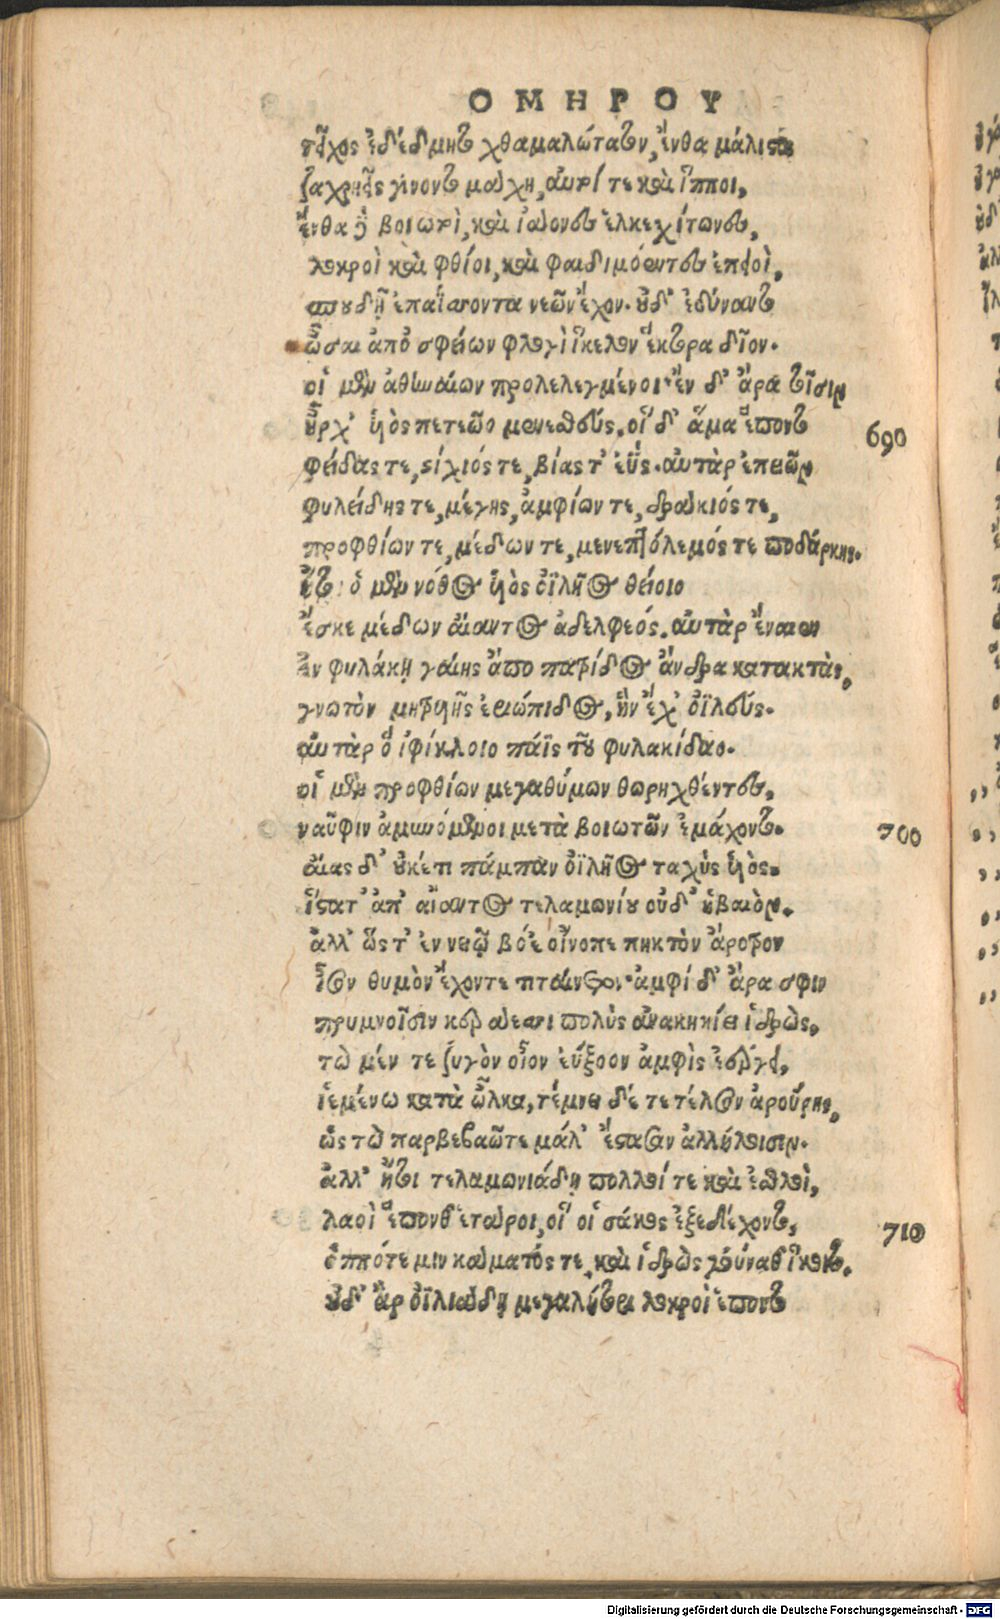 ΟΜΗΡΟΥ
τεῖχος ἐδέδμητο χθαμαλώτατον, ἔνθα μάλιστα
ζαχρηεῖς γίνοντο μάχῃ, αὐτοί τε καὶ ἵπποι,
ἔνθα δὲ βοιωτοὶ, καὶ ἰάονες ἑλκεχίτωνες,
λοκροὶ καὶ φθῖοι, καὶ φαιδιμόεντες ἐπειοὶ,
σπουδῇ ἐπαΐσσοντα νεῶν ἔχον. οὐδ' ἐδύναντο
ὦσαι ἀπὸ σφείων φλογὶ ἴκελον ἕκτορα δῖον.
οἱ μὲν ἀθηναίων προλελεγμένοι· ἐν δ' ἄρα τοῖσιν
ἦρχ' υἱὸς πετεῶο μενεσθεύς. οἳ δ' ἅμα ἕποντο
φείδας τε, στίχιός τε, βίας τ' ἐΰς. αὐτὰρ ἐπειῶν
φυλείδης τε, μέγης, ἀμφίων τε, δρακιός τε,
προφθίων τε, μέδων τε, μενεπτόλεμός τε ποδάρκης.
ἤτοι ὁ μὲν νόθος υἱὸς ὀϊλῆος θείοιο
ἔσκε μέδων αἴαντος ἀδελφεός. αὐτὰρ ἔναιεν
ἐν φυλάκῃ γαίης ἄπο πατρίδος ἄνδρα κατακτὰς,
γνωτὸν μητρυιῆς ἐριώπιδος, ἣν ἔχ' ὀϊλεύς.
αὐτὰρ ὁ ἰφίκλοιο πάϊς τοῦ φυλακίδαο.
οἱ μὲν προφθίων μεγαθύμων θωρηχθέντες,
ναῦφιν ἀμυνόμενοι μετὰ βοιωτῶν ἐμάχοντο.
αἴας δ' οὐκέτι πάμπαν ὀϊλῆος ταχὺς υἱὸς.
ἵστατ' ἀπ' αἴαντος τελαμωνίου οὐδ' ἠβαιὸν.
ἀλλ' ὥς τ' ἐν νειῷ βόε οἴνοπε πηκτὸν ἄροτρον
ἶσον θυμὸν ἔχοντε τιταίνετον· ἀμφὶ δ' ἄρα σφιν
πρυμνοῖσιν κεράεσσι πολὺς ἀνακηκίει ἱδρὼς,
τὼ μέν τε ζυγὸν οἶον ἐύξοον ἀμφὶς ἐέργει,
ἱεμένω κατὰ ὦλκα, τέμνει δέ τε τέλσον ἀρούρης,
ὣς τὼ παρβεβαῶτε μάλ' ἕστασαν ἀλλήλοισιν.
ἀλλ' ἤτοι τελαμωνιάδῃ πολλοί τε καὶ ἐσθλοὶ,
λαοὶ ἕπονθ' ἕταροι, οἵ οἱ σάκος ἐξεδέχοντο,
ὁππότε μιν κάματός τε, καὶ ἱδρὼς γούναθ' ἵκοιτο.
οὐδ' ἄρ ὀϊλιάδῃ μεγαλήτορι λοκροὶ ἕποντο
690
700
710
Digitalisierung gefördert durch die Deutsche Forschungsgemeinschaft - DFG